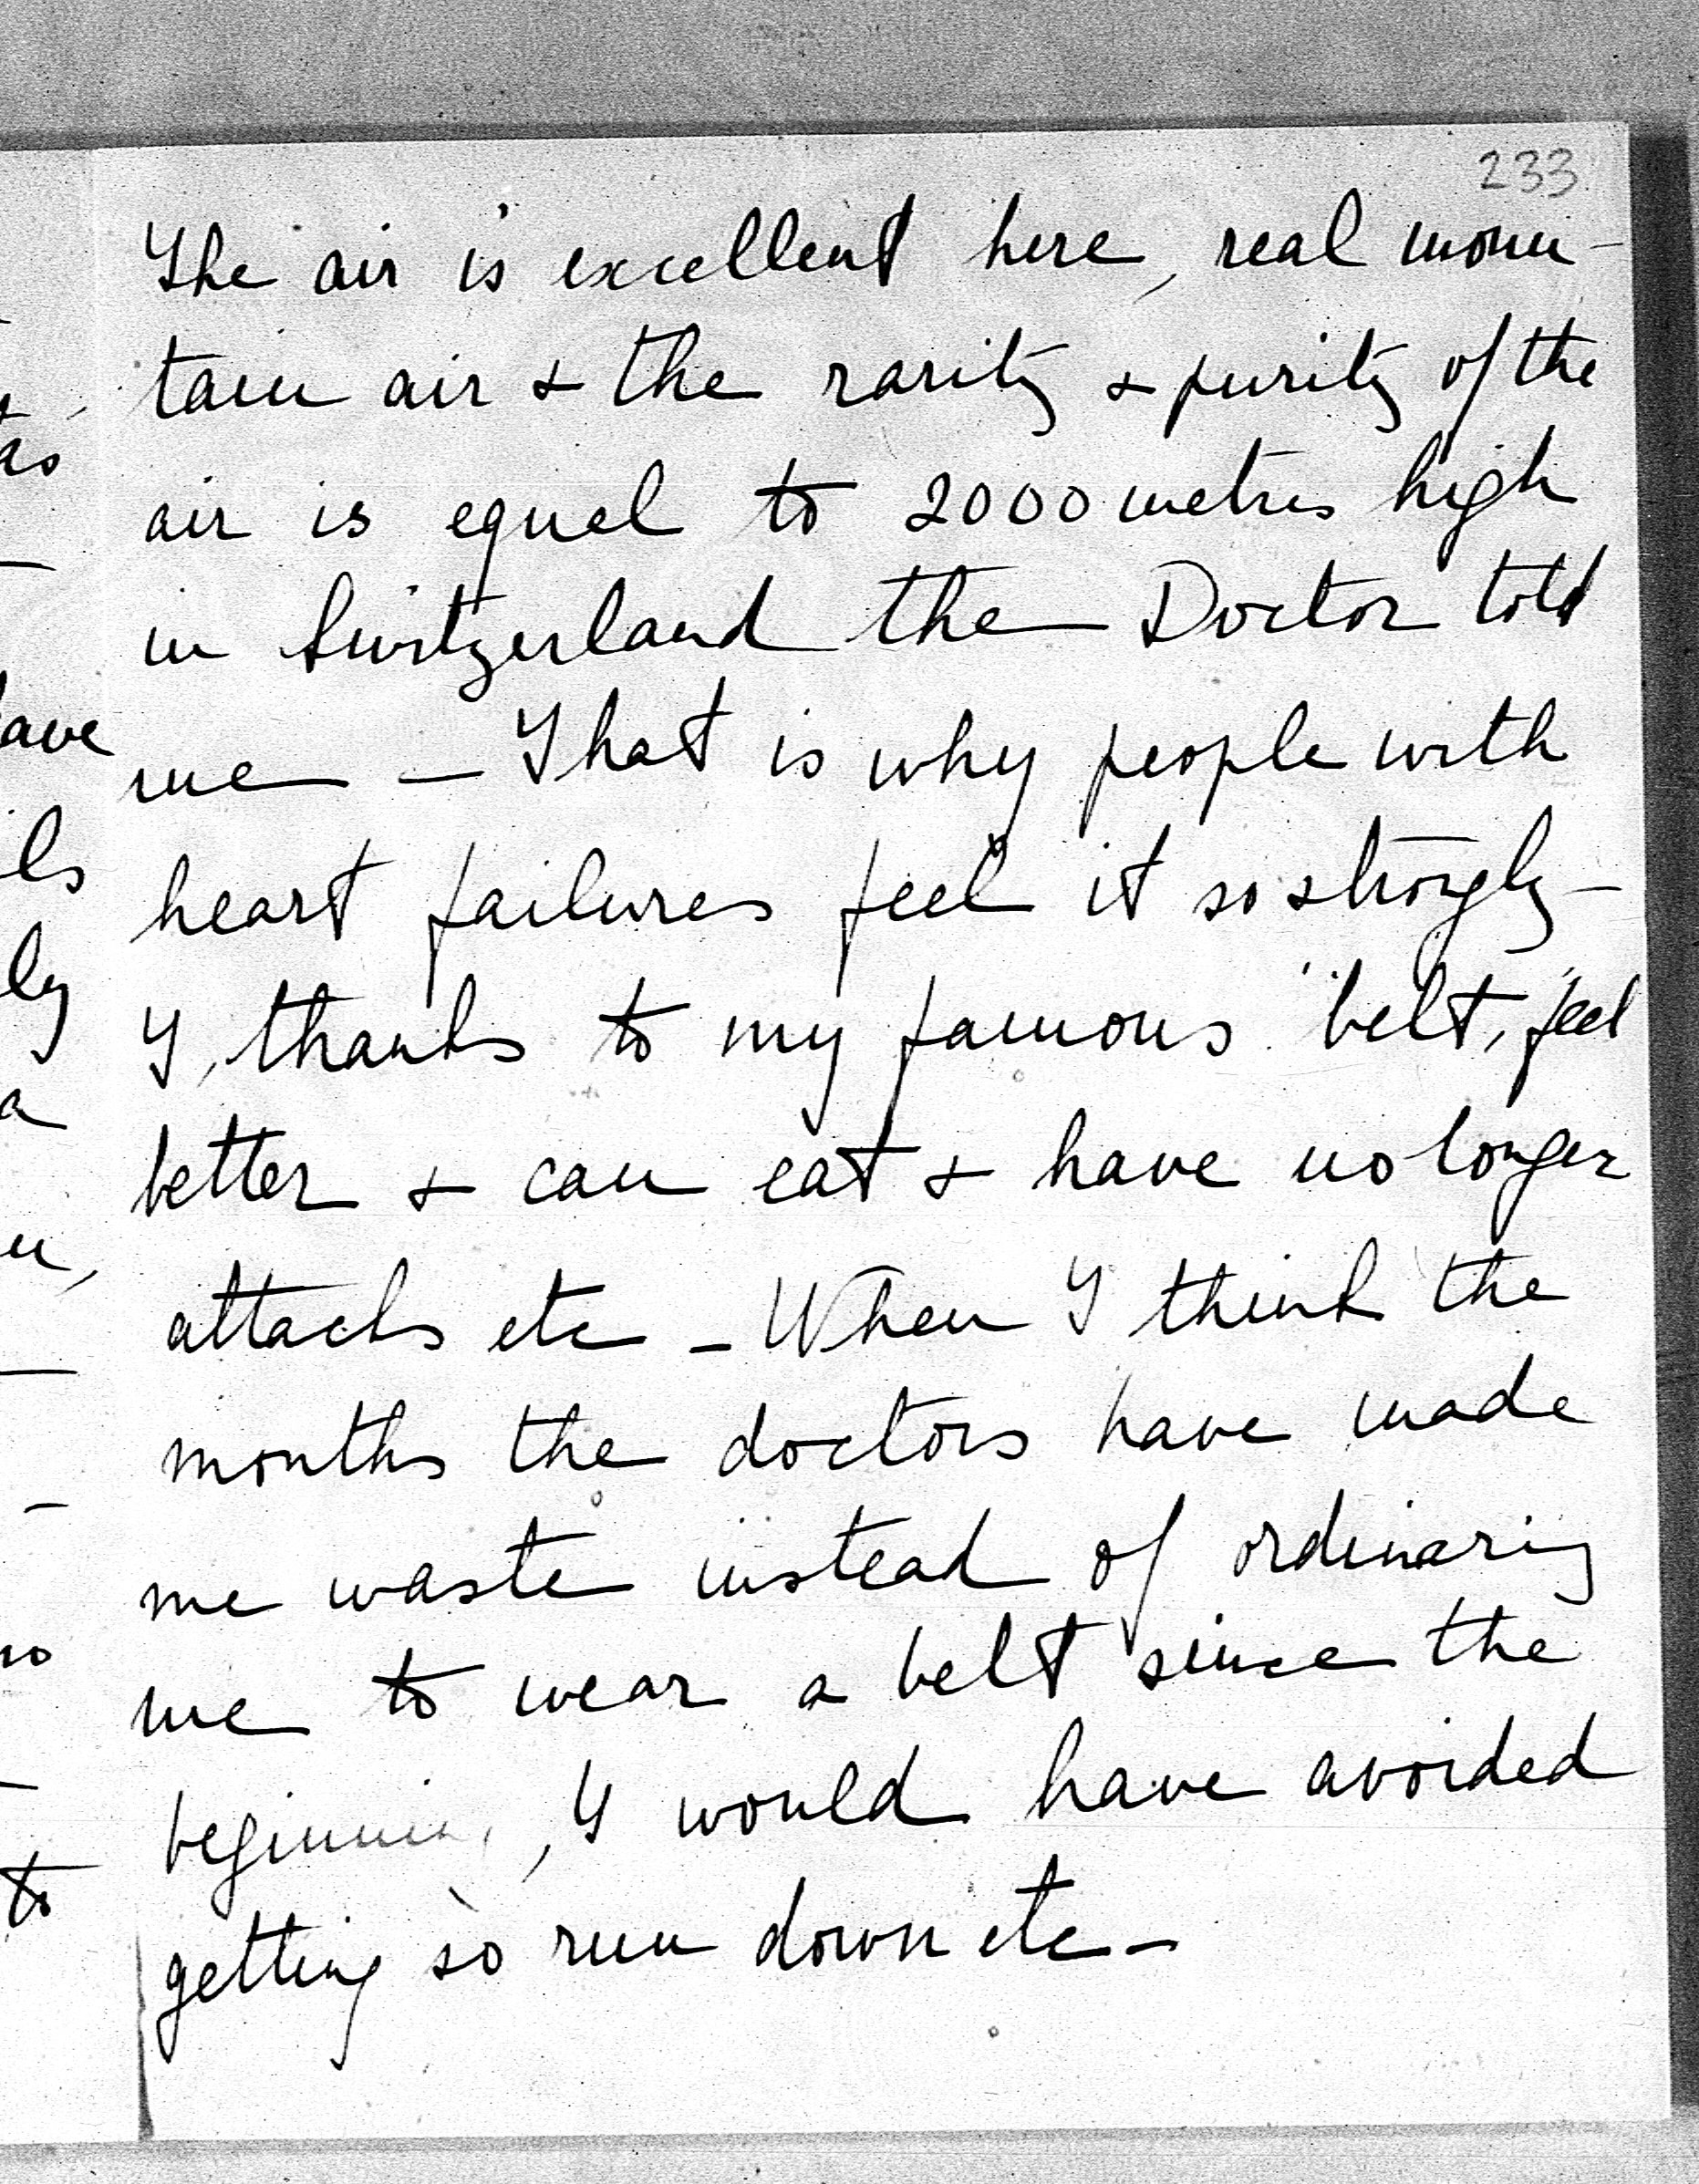 233
The air is excellent here, real moun-
tain air & the rarity & purity of the
air is equal to 2000 metres high
in Switzerland the Doctor told
me — That is why people with
heart failures feel it so strongly —
I, thanks to my famous belt, feel
better & can eat & have no longer
attacks etc — When I think the
months the doctors have made
me waste instead of ordinaring
me to wear a belt since the
beginning, I would have avoided
getting so run down etc —